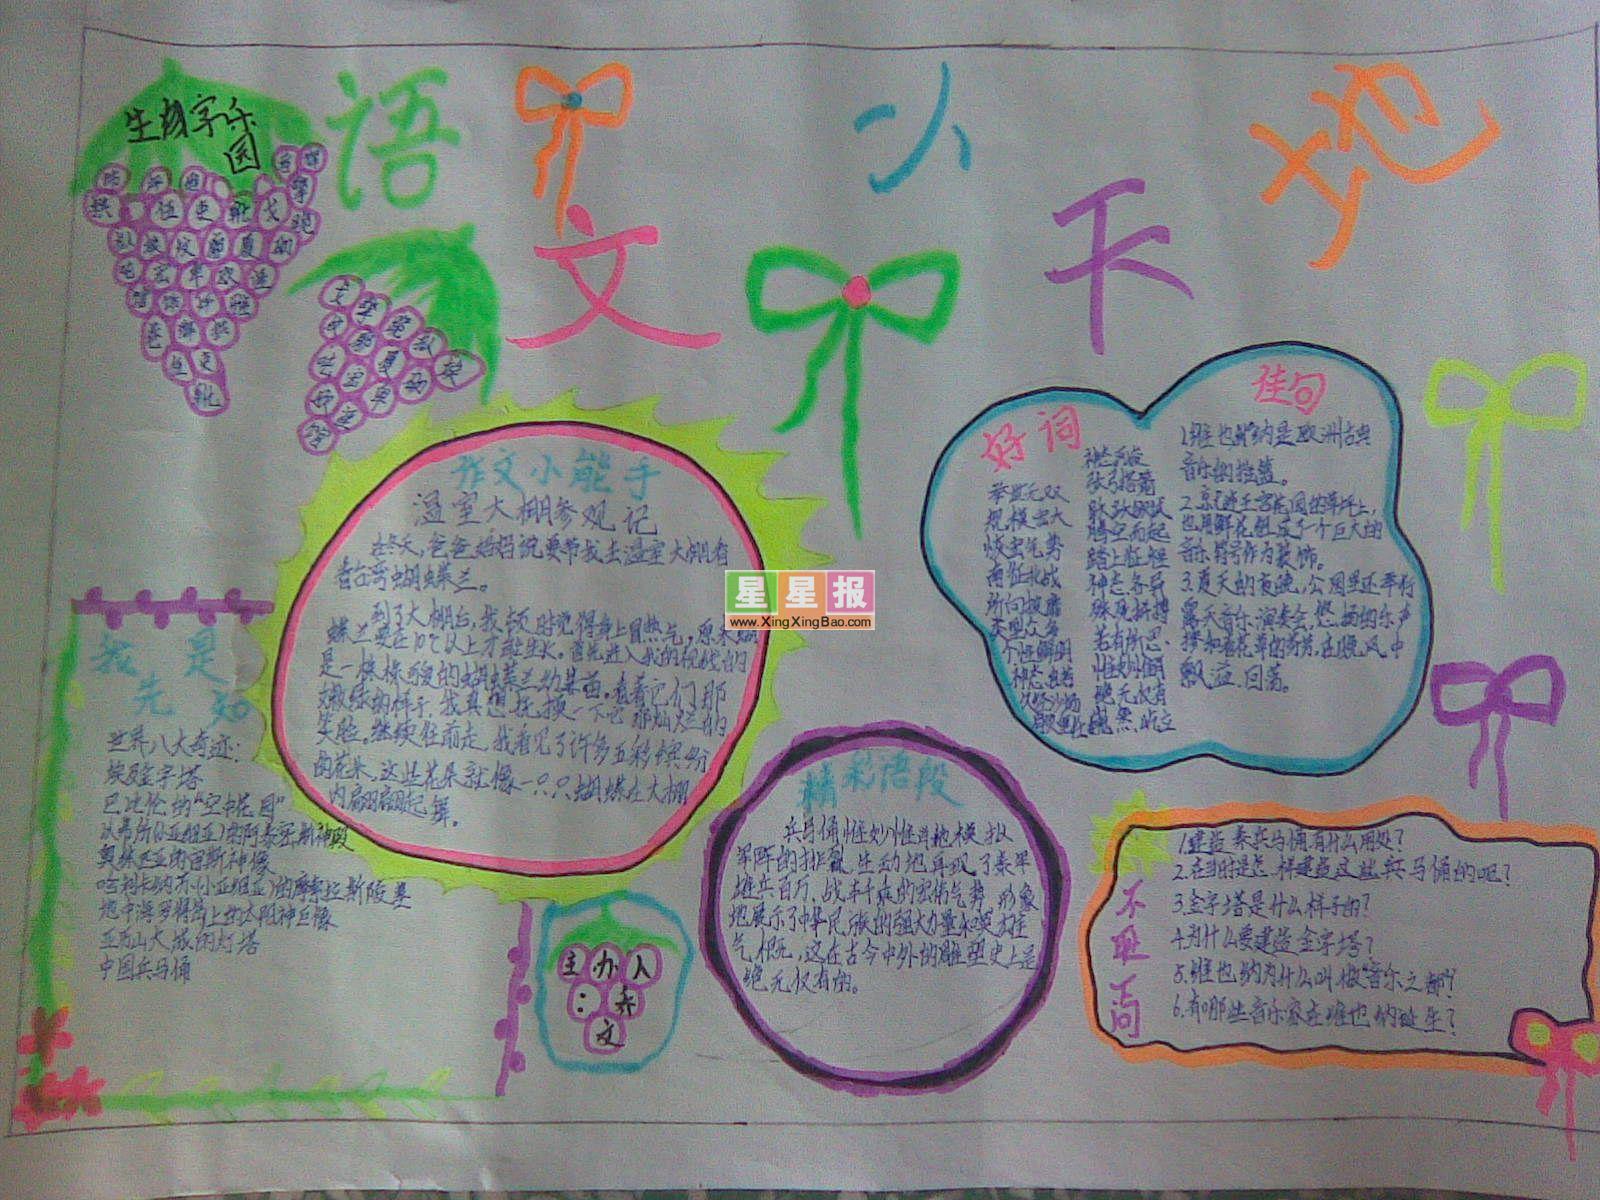 语文小天地
生字乐园
作文小能手
温室大棚参观记
冬天,爸爸妈妈说要带我去温室大棚看
看台湾蝴蝶兰。
到了大棚后,我顿时觉得身上冒热气,原来蝴
蝶兰要在10℃以上才能生长。首先进入我的视线的
是一株株
的蝴蝶兰幼苗,看着它们那
嫩绿的样子,我真想抚摸一下它那灿烂的
笑脸。继续往前走,我看见了许多五彩缤纷
的花朵,这些花朵就像一只只蝴蝶在大棚
内翩翩起舞。
好词
举世无双
规模宏大
恢宏气势
南征北战
所向披靡
类型众多
个性鲜明
久经沙场
张弓搭箭
跃跃欲试
腾空而起
踏上征程
神态各异
殊死拼搏
若有所思
惟妙惟肖
绝无仅有
佳句
1.维也纳是欧洲古典
音乐的摇篮。
2.
也用鲜花组成了一个巨大的
音乐符号作为装饰。
3.夏天的夜晚,公园里还举行
露天音乐演奏会,悠扬的乐声
掺和着花草的芳芬,在晚风中
飘溢、回荡。
我是先知
世界八大奇迹:
埃及金字塔
巴比伦的“空中花园”
以弗所(小亚细亚)的阿泰密斯神殿
奥林匹亚的宙斯神像
哈利卡纳苏(小亚细亚)的摩索拉斯陵墓
地中海罗得岛上的太阳神巨像
亚历山大城的灯塔
中国兵马俑
主办人
:乔
文
精彩语段
兵马俑惟妙惟肖地模拟
军阵的排
生动地再现了秦军
雄兵百万,战车千乘的宏伟气势,形象
地展示了中华民族的强大力量和英雄
气概,这在古今中外的雕塑史上是
绝无仅有的。
不耻下问
1.建造秦兵马俑有什么用处?
2.在当时是怎样建造这些兵马俑的呢?
3.金字塔是什么样子的?
4.为什么要建造金字塔?
5.维也纳为什么叫做“音乐之都”?
6.有哪些音乐家在维也纳诞生?
星星报
www.XingXingBao.com